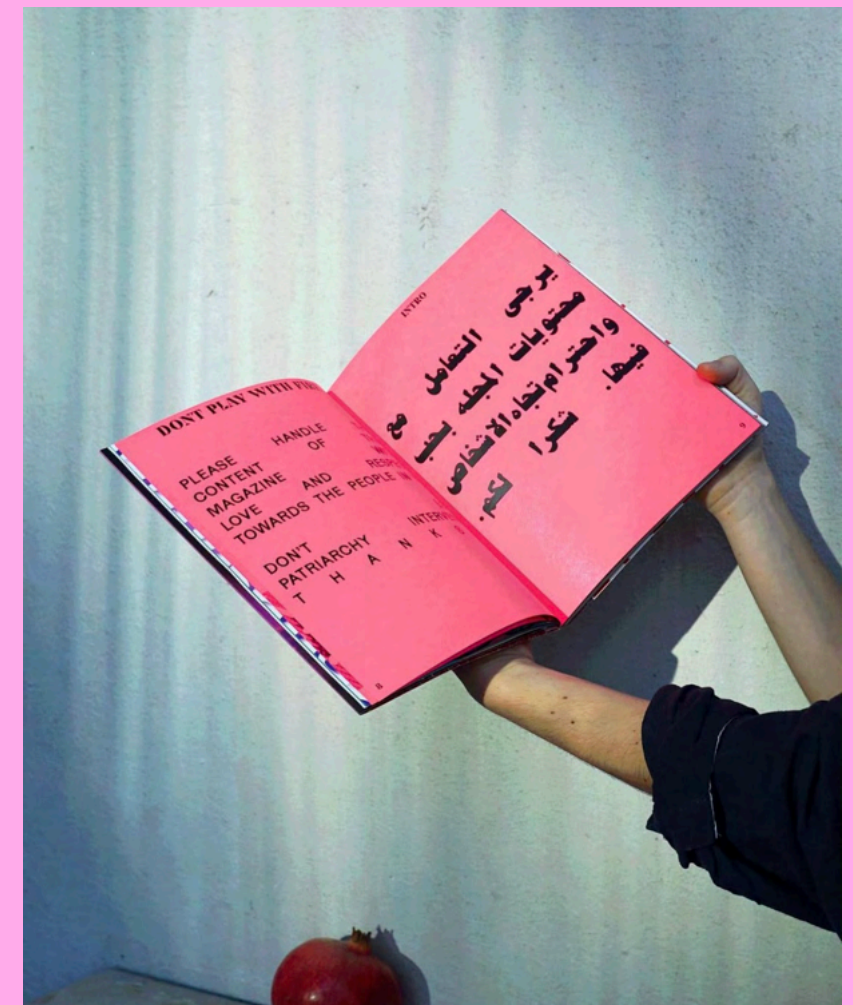 DONT PLAY WITH
PLEASE HANDLE
CONTENT OF
MAGAZINE
LOVE AND
TOWARDS THE PEOPLE
DON'T
PATRIARCHY
T H A N K
8
INTRO
يرجى التعامل مع
محتويات المجله بحب
واحترام تجاه الاشخاص
فيها شكرا لكم
9